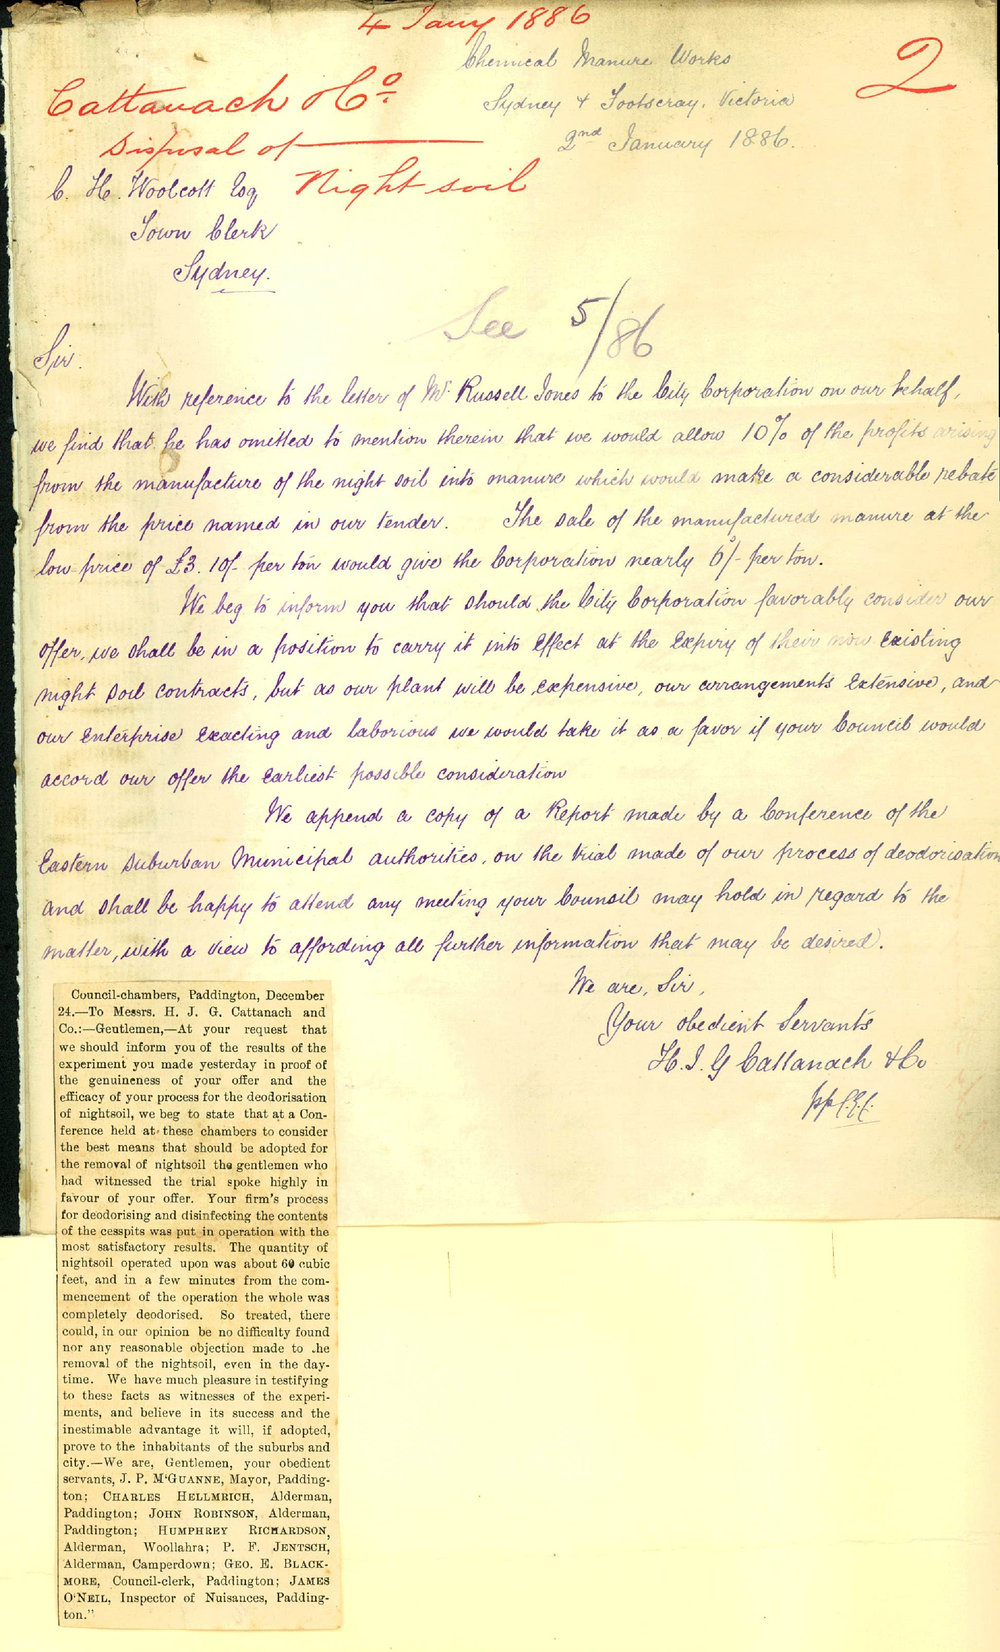 4 Jany 1886
2
Cattanach & Co.
Disposal of
Night soil
Chemical Manure Works
Sydney & Footscray, Victoria
2nd January 1886.
C. H. Woolcott Esq
Town Clerk
Sydney.
See 5/86
Sir.
With reference to the letter of Mr Russell Jones to the City Corporation on our behalf,
we find that he has omitted to mention therein that we would allow 10% of the profits arising
from the manufacture of the night soil into manure which would make a considerable rebate
from the price named in our tender. The sale of the manufactured manure at the
low price of £3. 10/- per ton would give the Corporation nearly 6/- per ton.
We beg to inform you that should the City Corporation favorably consider our
offer, we shall be in a position to carry it into Effect at the Expiry of their now Existing
night soil contracts, but as our plant will be expensive, our arrangements Extensive, and
our Enterprise Exacting and laborious we would take it as a favor if your Council would
accord our offer the Earliest possible consideration
We append a copy of a Report made by a Conference of the
Eastern Suburban Municipal authorities, on the trial made of our process of deodorisation
and shall be happy to attend any meeting your Counsil may hold in regard to the
matter, with a view to affording all further information that may be desired.
We are, Sir,
Your obedient Servants
H. J. G Cattanach & Co
Council-chambers, Paddington, December
24.—To Messrs. H. J. G. Cattanach and
Co.:—Gentlemen,—At your request that
we should inform you of the results of the
experiment you made yesterday in proof of
the genuineness of your offer and the
efficacy of your process for the deodorisation
of nightsoil, we beg to state that at a Con-
ference held at these chambers to consider
the best means that should be adopted for
the removal of nightsoil the gentlemen who
had witnessed the trial spoke highly in
favour of your offer. Your firm's process
for deodorising and disinfecting the contents
of the cesspits was put in operation with the
most satisfactory results. The quantity of
nightsoil operated upon was about 60 cubic
feet, and in a few minutes from the com-
mencement of the operation the whole was
completely deodorised. So treated, there
could, in our opinion be no difficulty found
nor any reasonable objection made to .he
removal of the nightsoil, even in the day-
time. We have much pleasure in testifying
to these facts as witnesses of the experi-
ments, and believe in its success and the
inestimable advantage it will, if adopted,
prove to the inhabitants of the suburbs and
city.—We are, Gentlemen, your obedient
servants, J. P. M'GUANNE, Mayor, Padding-
ton; CHARLES HELLMRICH, Alderman,
Paddington; JOHN ROBINSON, Alderman,
Paddington; HUMPHREY RICHARDSON,
Alderman, Woollahra; P. F. JENTSCH,
Alderman, Camperdown; GEO. E. BLACK-
MORE, Council-clerk, Paddington; JAMES
O'NEIL, Inspector of Nuisances, Padding-
ton."